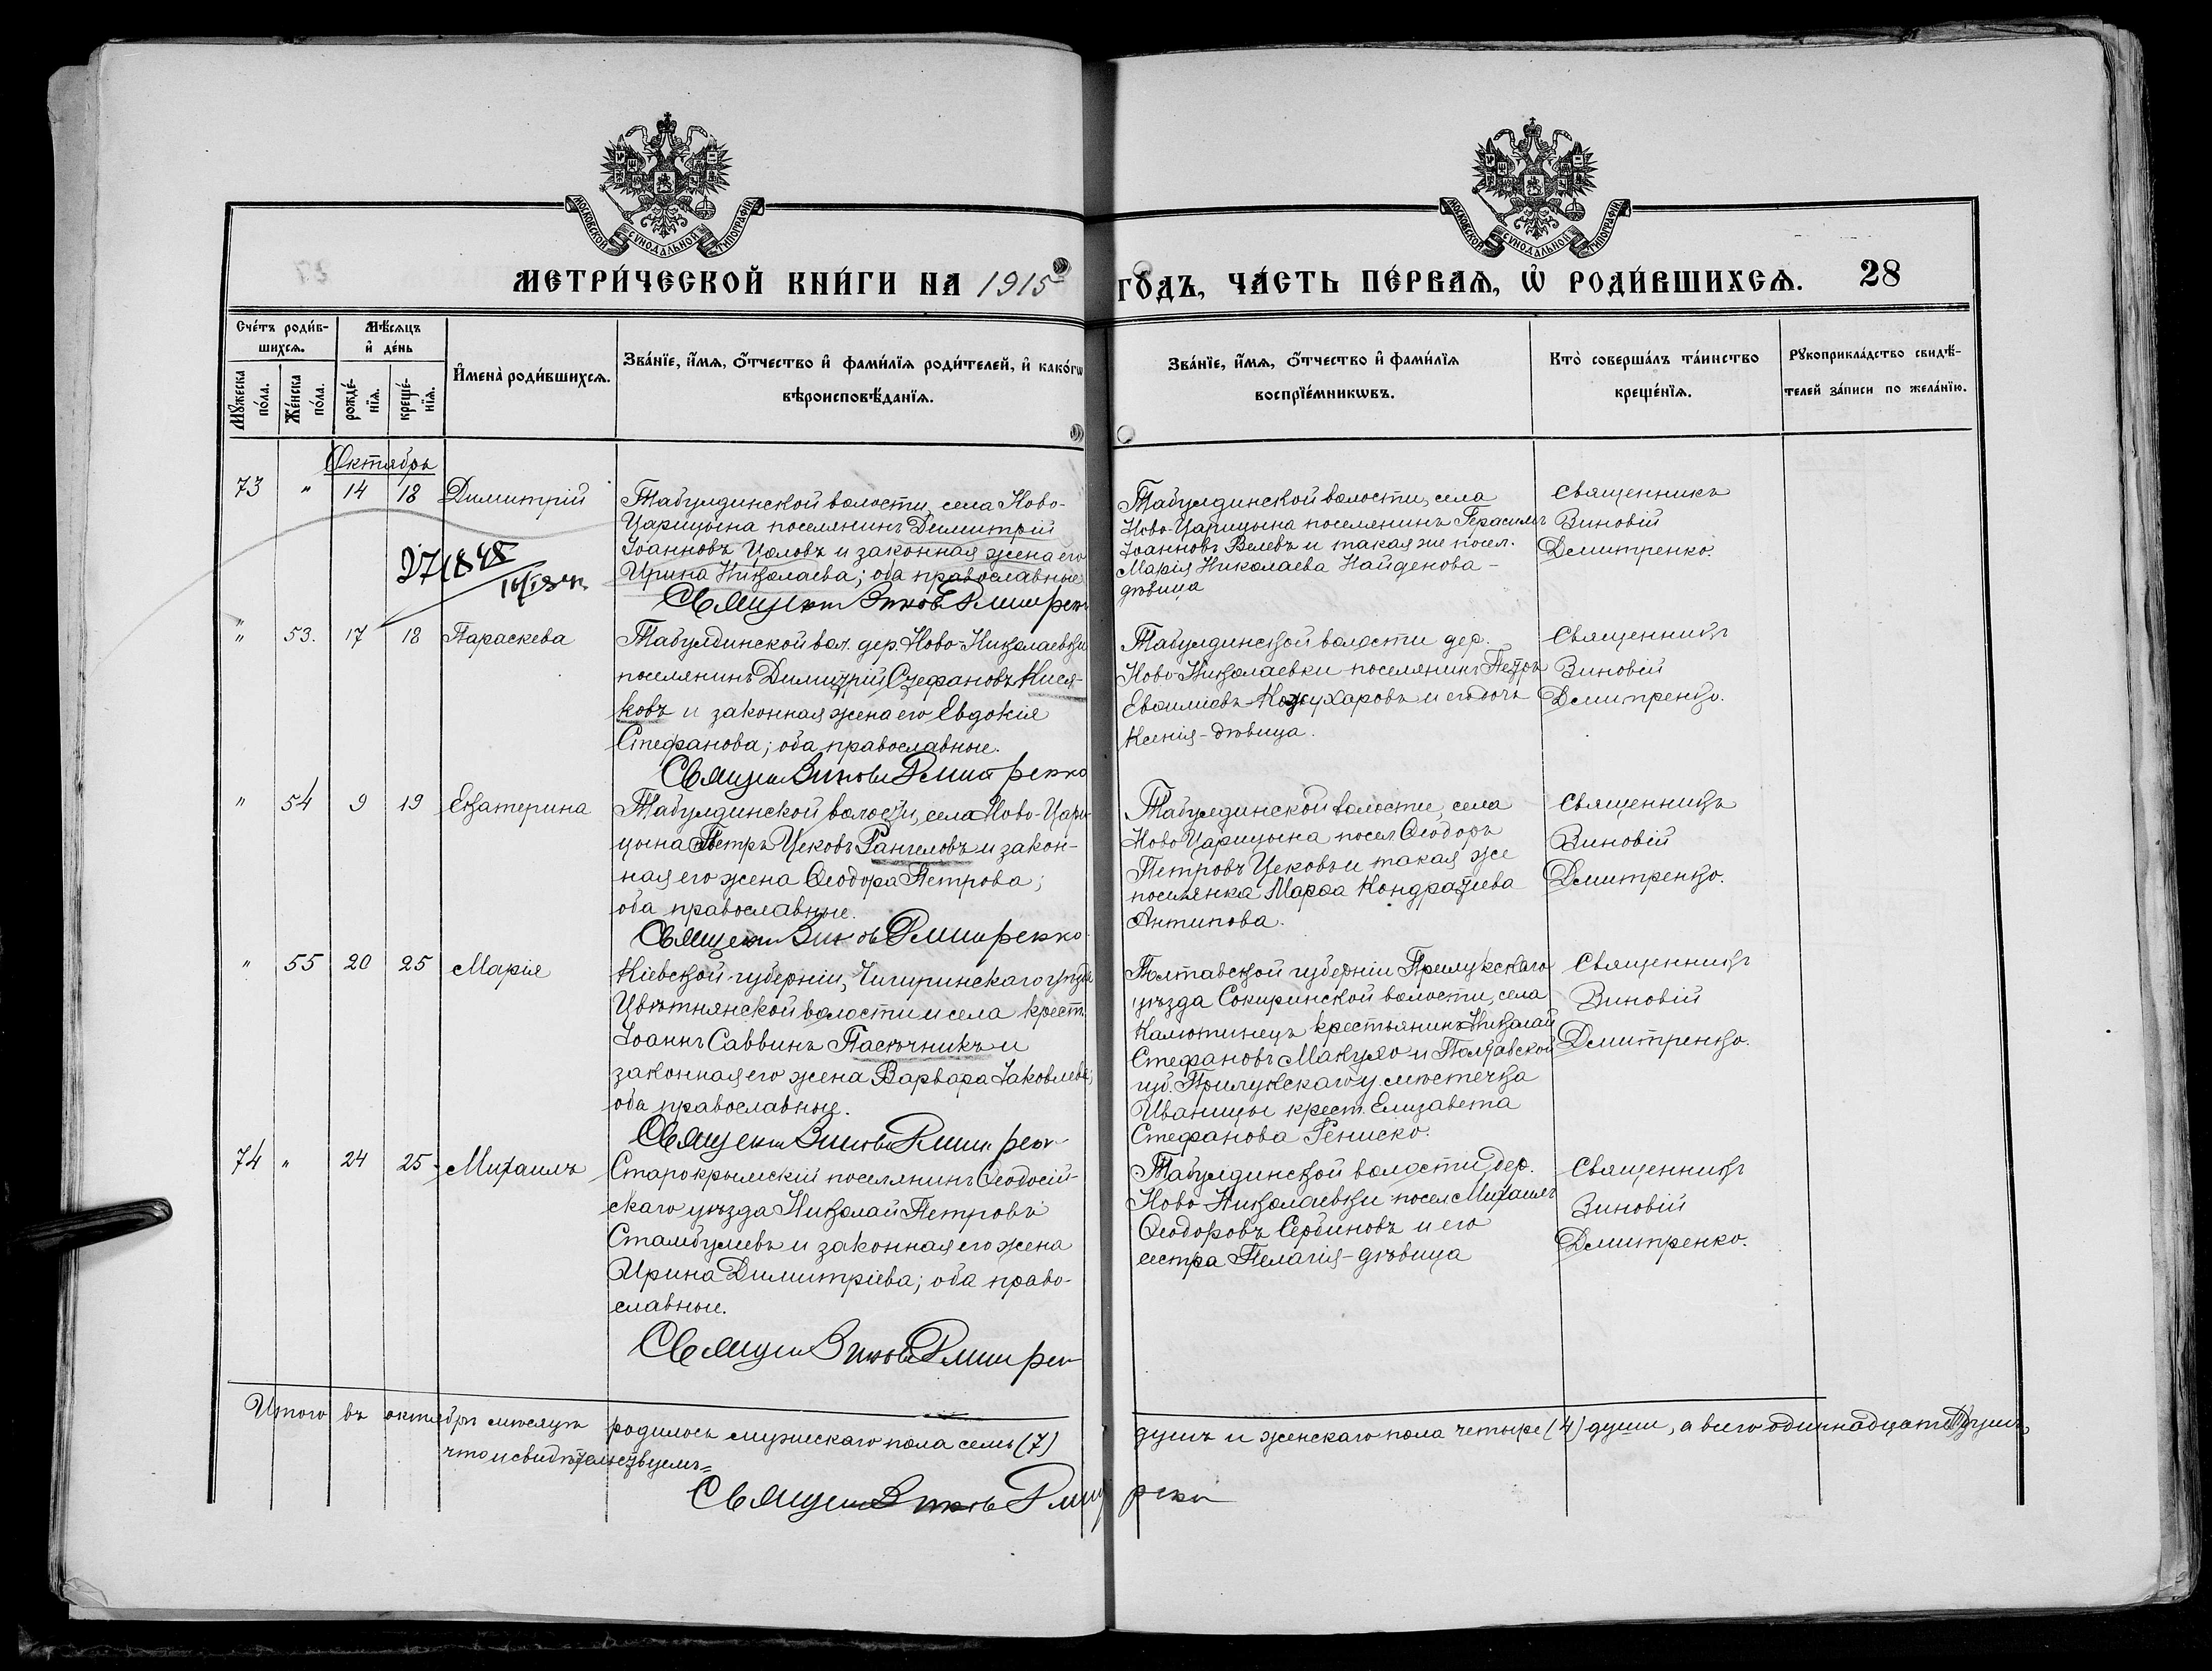 МОСКОВСКОЙ СѴНОДАЛЬНОЙ ТИПОГРАФІИ
МОСКОВСКОЙ СѴНОДАЛЬНОЙ ТИПОГРАФІИ
МЕТРИ́ЧЕСКОЙ КНИ́ГИ НА 1915
ГО́ДЪ, ЧА́СТЬ ПЕ́РВАЯ, Ѡ҆ РОДИ́ВШИХСѦ. 28
Сче́тъ роди́в-
шихсѧ.
Мѣ́сѧцъ
и҆ де́нь
Мꙋ́жеска
по́ла.
Же́нска
по́ла.
рожде́-
нїѧ.
креще́-
нїѧ.
И҆мена̀ роди́вшихсѧ.
Зва́нїе, и҆́мѧ, ѻ҆́тчество и҆ фами́лїѧ роди́телей, и҆ како́гѡ
вѣроисповѣ́данїѧ.
Зва́нїе, и҆́мѧ, ѻ҆́тчество и҆ фами́лїѧ
воспрїе́мникѡвъ.
Кто̀ соверша́лъ та́инство
креще́нїѧ.
Рꙋкоприкла́дство свидѣ́-
телей за́писи по жела́нїю.
Октябрь
73 " 14 18 Димитрій
Табулдинской волости, села Ново-
Царицына поселянинъ Димитрій
Іоанновъ Цоловъ и законная жена его
Ирина Николаева; оба православные
Священ Зинов Дмитренк
Табулдинской волости, села
Ново-Царицына поселянинъ Герасимъ
Іоанновъ Велевъ и такая же посел.
Марія Николаева Найденова-
дѣвица
Священникъ
Зиновій
Дмитренко.
271848
" 53. 17 18 Параскева
Табулдинской вол. дер. Ново-Николаевки
поселянинъ Димитрій Стефановъ Кися-
ковъ и законная жена его Евдокія
Стефанова; оба православные.
Священ Зинові Дмитренко
Табулдинской волости дер.
Ново-Николаевки поселянинъ Петръ
Евѳиміевъ Кожухаровъ и его дочь
Ксенія-дѣвица.
Священникъ
Зиновій
Дмитренко.
" 54 9 19 Екатерина
Табулдинской волости, села Ново-Цари-
цына Петръ Цековъ Рангеловъ и закон-
ная его жена Ѳеодора Петрова;
оба православные.
Священ Зинов Дмитренко
Табулдинской волости, села
Ново Царицына посел Ѳеодоръ
Петровъ Цековъ и такая же
поселянка Марѳа Кондратіева
Антипова.
Священникъ
Зиновій
Дмитренко.
" 55 20 25 Марія
Кіевской губерніи, Чигиринскаго уѣзда
Цвѣтнянской волости и села крест.
Іоаннъ Саввинъ Пасѣчникъ и
законная его жена Варвара Іаковлева;
оба православные.
Священ Зинові Дмитрен
Полтавской губерніи Прилукскаго
уѣзда Сокиринской волости, села
Калютинецъ крестьянинъ Николай
Стефановъ Макуло и Полтавской
губ. Прилукскаго у. мѣстечка
Иваницы крест. Елизавета
Стефанова
Священникъ
Зиновій
Дмитренко.
74 " 24 25 Михаилъ
Старокрымскій поселянинъ Ѳеодосій-
скаго уѣзда Николай Петровъ
Стамбулиевъ и законная его жена
Ирина Димитріева; оба право-
славные.
Священ Зинові Дмитрен
Табулдинской волости, дер.
Ново Николаевки посел Михаилъ
Ѳеодоровъ Сербиновъ и его
сестра Пелагія-дѣвица
Священникъ
Зиновій
Дмитренко.
Итого въ октябрѣ мѣсяцѣ родилось мужескаго пола семь (7)
душъ и женскаго пола четыре (4) души, а всего одиннадцать душъ,
что и свидѣтельствуемъ=
Священ Зинов Дмитренк